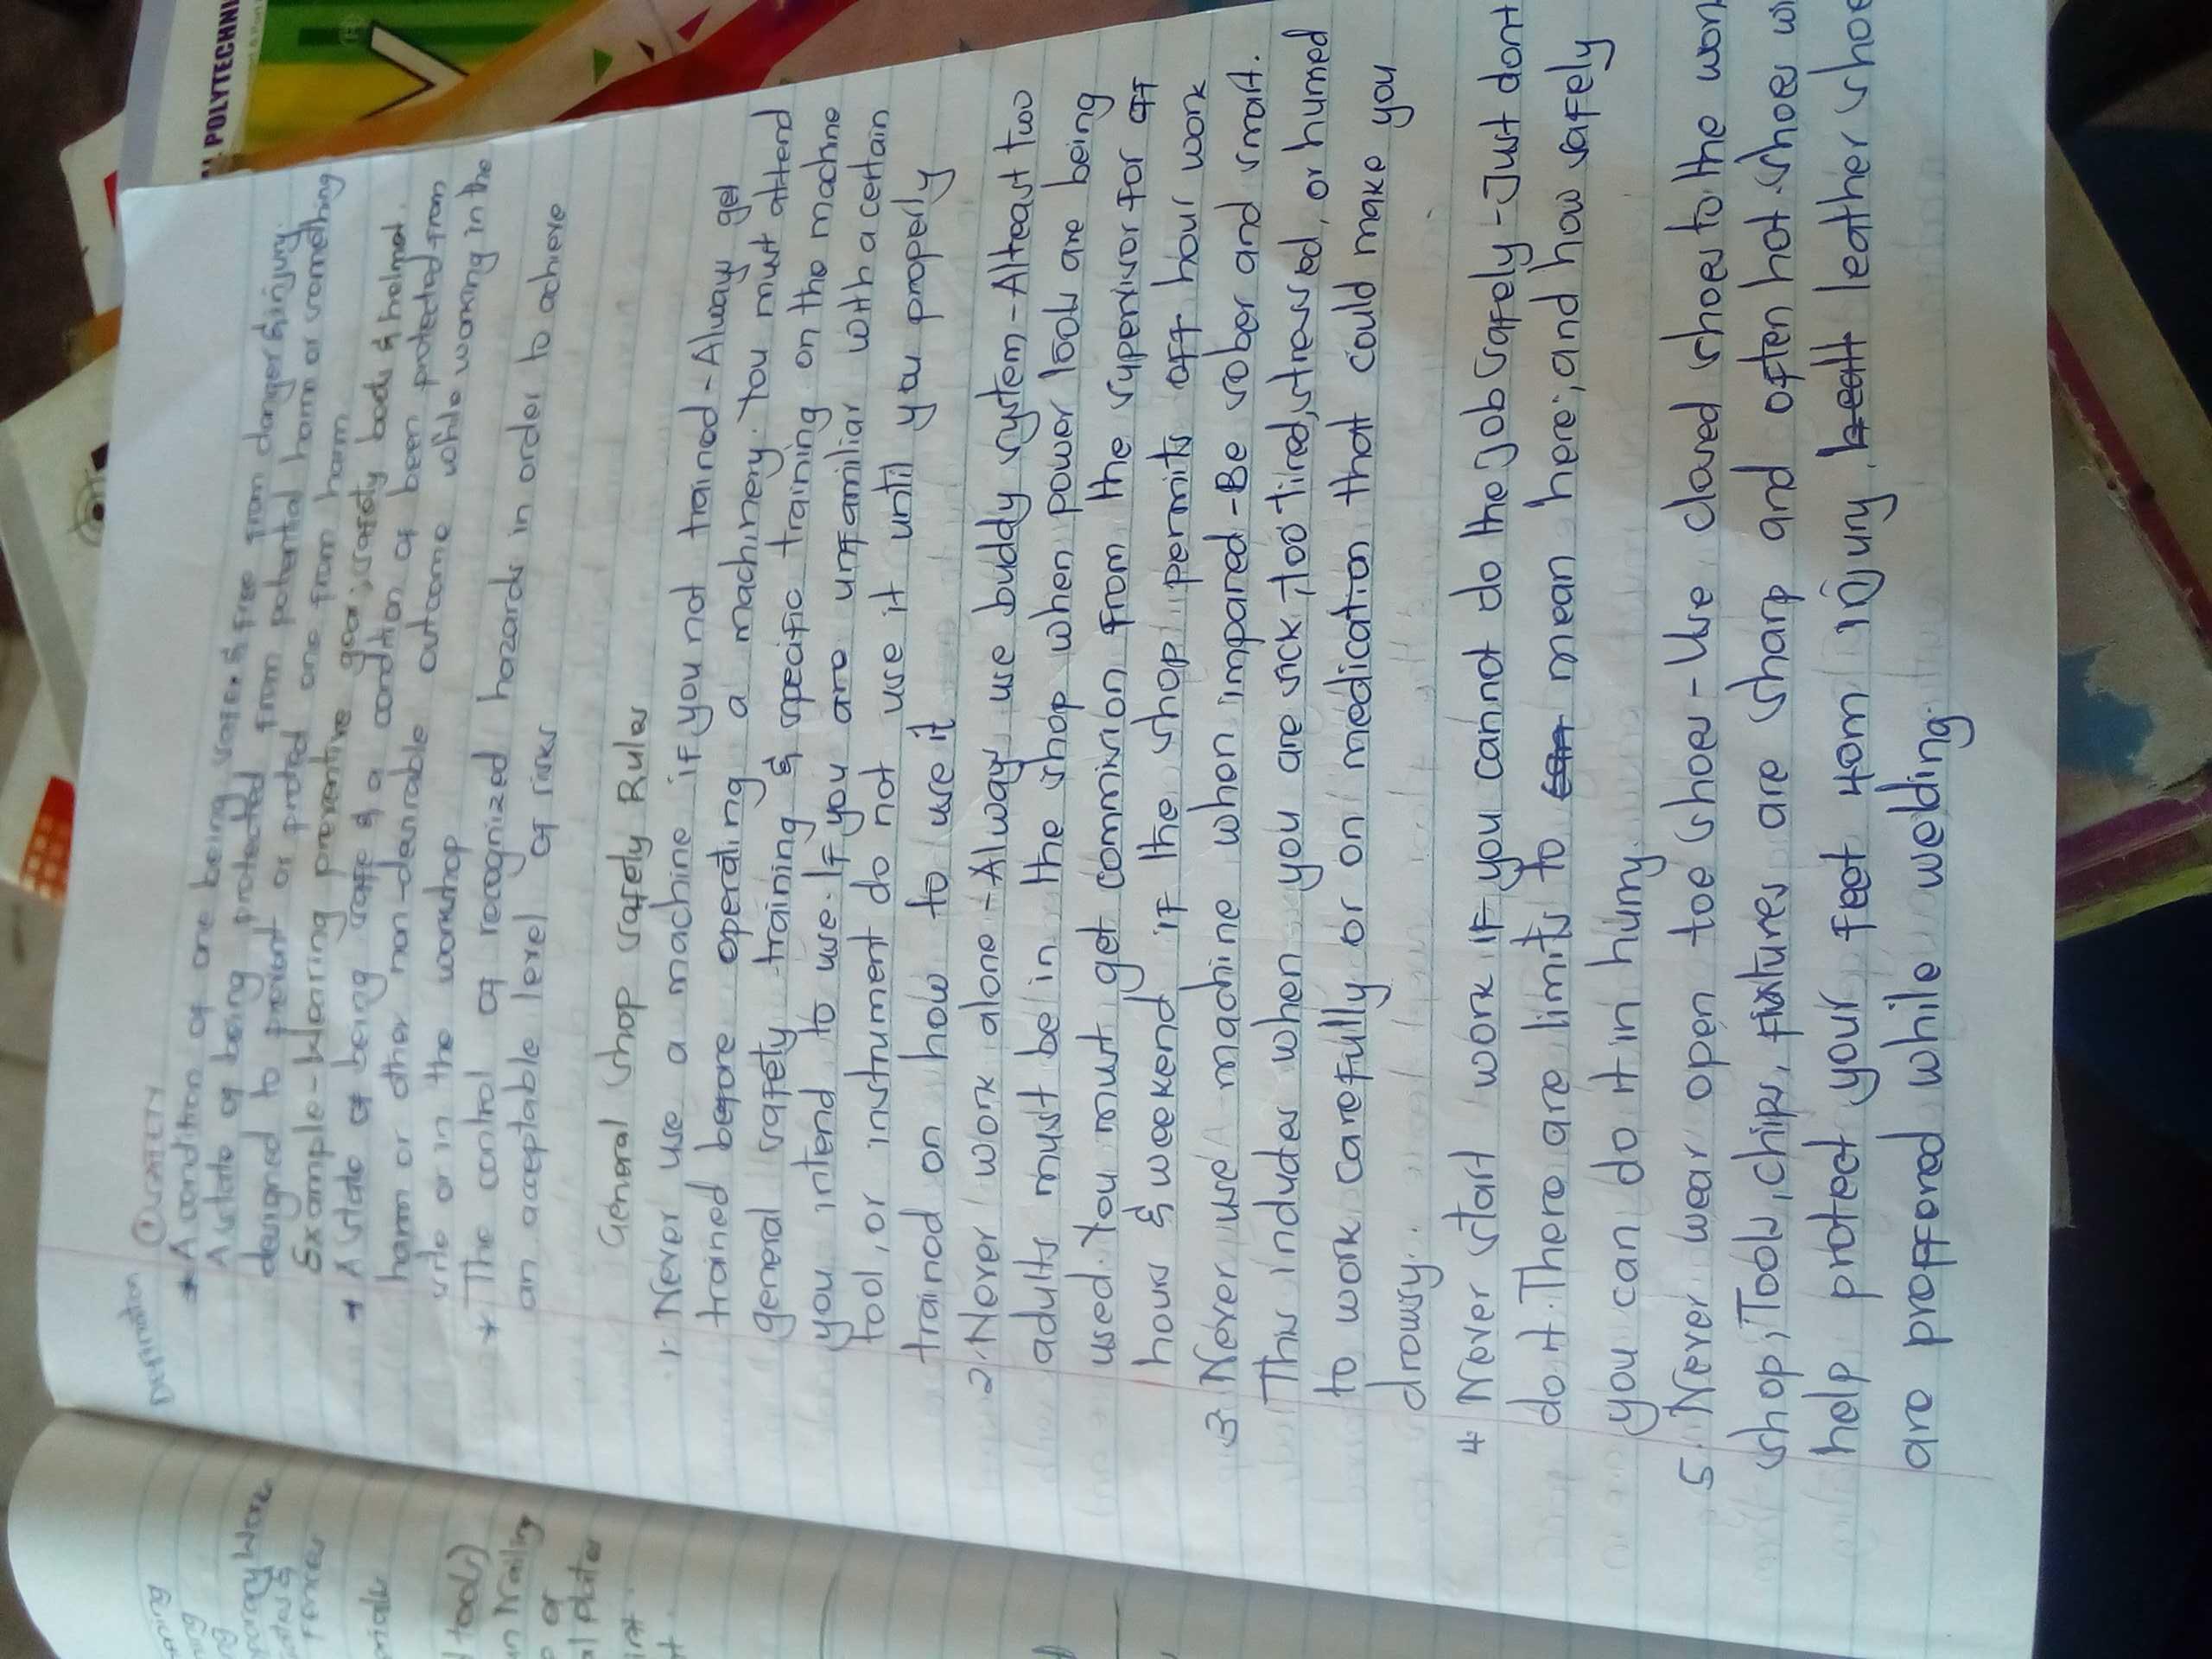 POLYTECHNI
Definition
① SAFETY
* A condition of one being safe & free from danger & injury.
A state of being protected from potential harm or something
designed to prevent or protect one from harm
Example - Wearing preventive gear, safety boots & helmet.
* A state of being safe & a condition of been protected from
harm or other non-desirable outcome while working in the
site or in the workshop
* The control of recognized hazards in order to achieve
an acceptable level of risks
General shop safety Rules
1. Never use a machine if you not trained - Always get
trained before operating a machinery. You must attend
general safety training & specific training on the machine
you intend to use. If you are unfamiliar with a certain
tool, or instrument do not use it until you properly
trained on how to use it
2. Never work alone - Always use buddy system - Atleast two
adults must be in the shop when power tools are being
used. You must get commision from the supervisor for off
hours & weekend if the shop permits off hour work
3 Never use machine when impared - Be sober and smart.
This includes when you are sick, too tired, stressed, or hurried
to work carefully or on medication that could make you
drowsy.
4 Never start work if you cannot do the job safely - Just dont
do it. There are limits to mean here, and how safely
you can do it in hurry.
5. Never wear open toe shoes - Use closed shoes to the wor
shop, Tools, chips, fixtures are sharp and often hot. shoes wi
help protect your feet from injury, leather shoe
are proffered while welding.
tools)